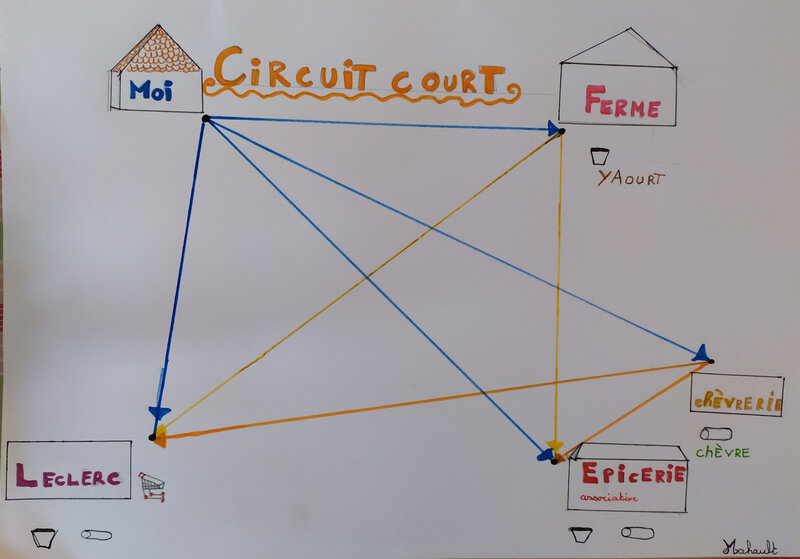 Moi
CiRCUiT COURT
FERME
YAOURT
chÈVRERIE
chÈVRE
LECLERC
EPiCERiE
associative
Mahault